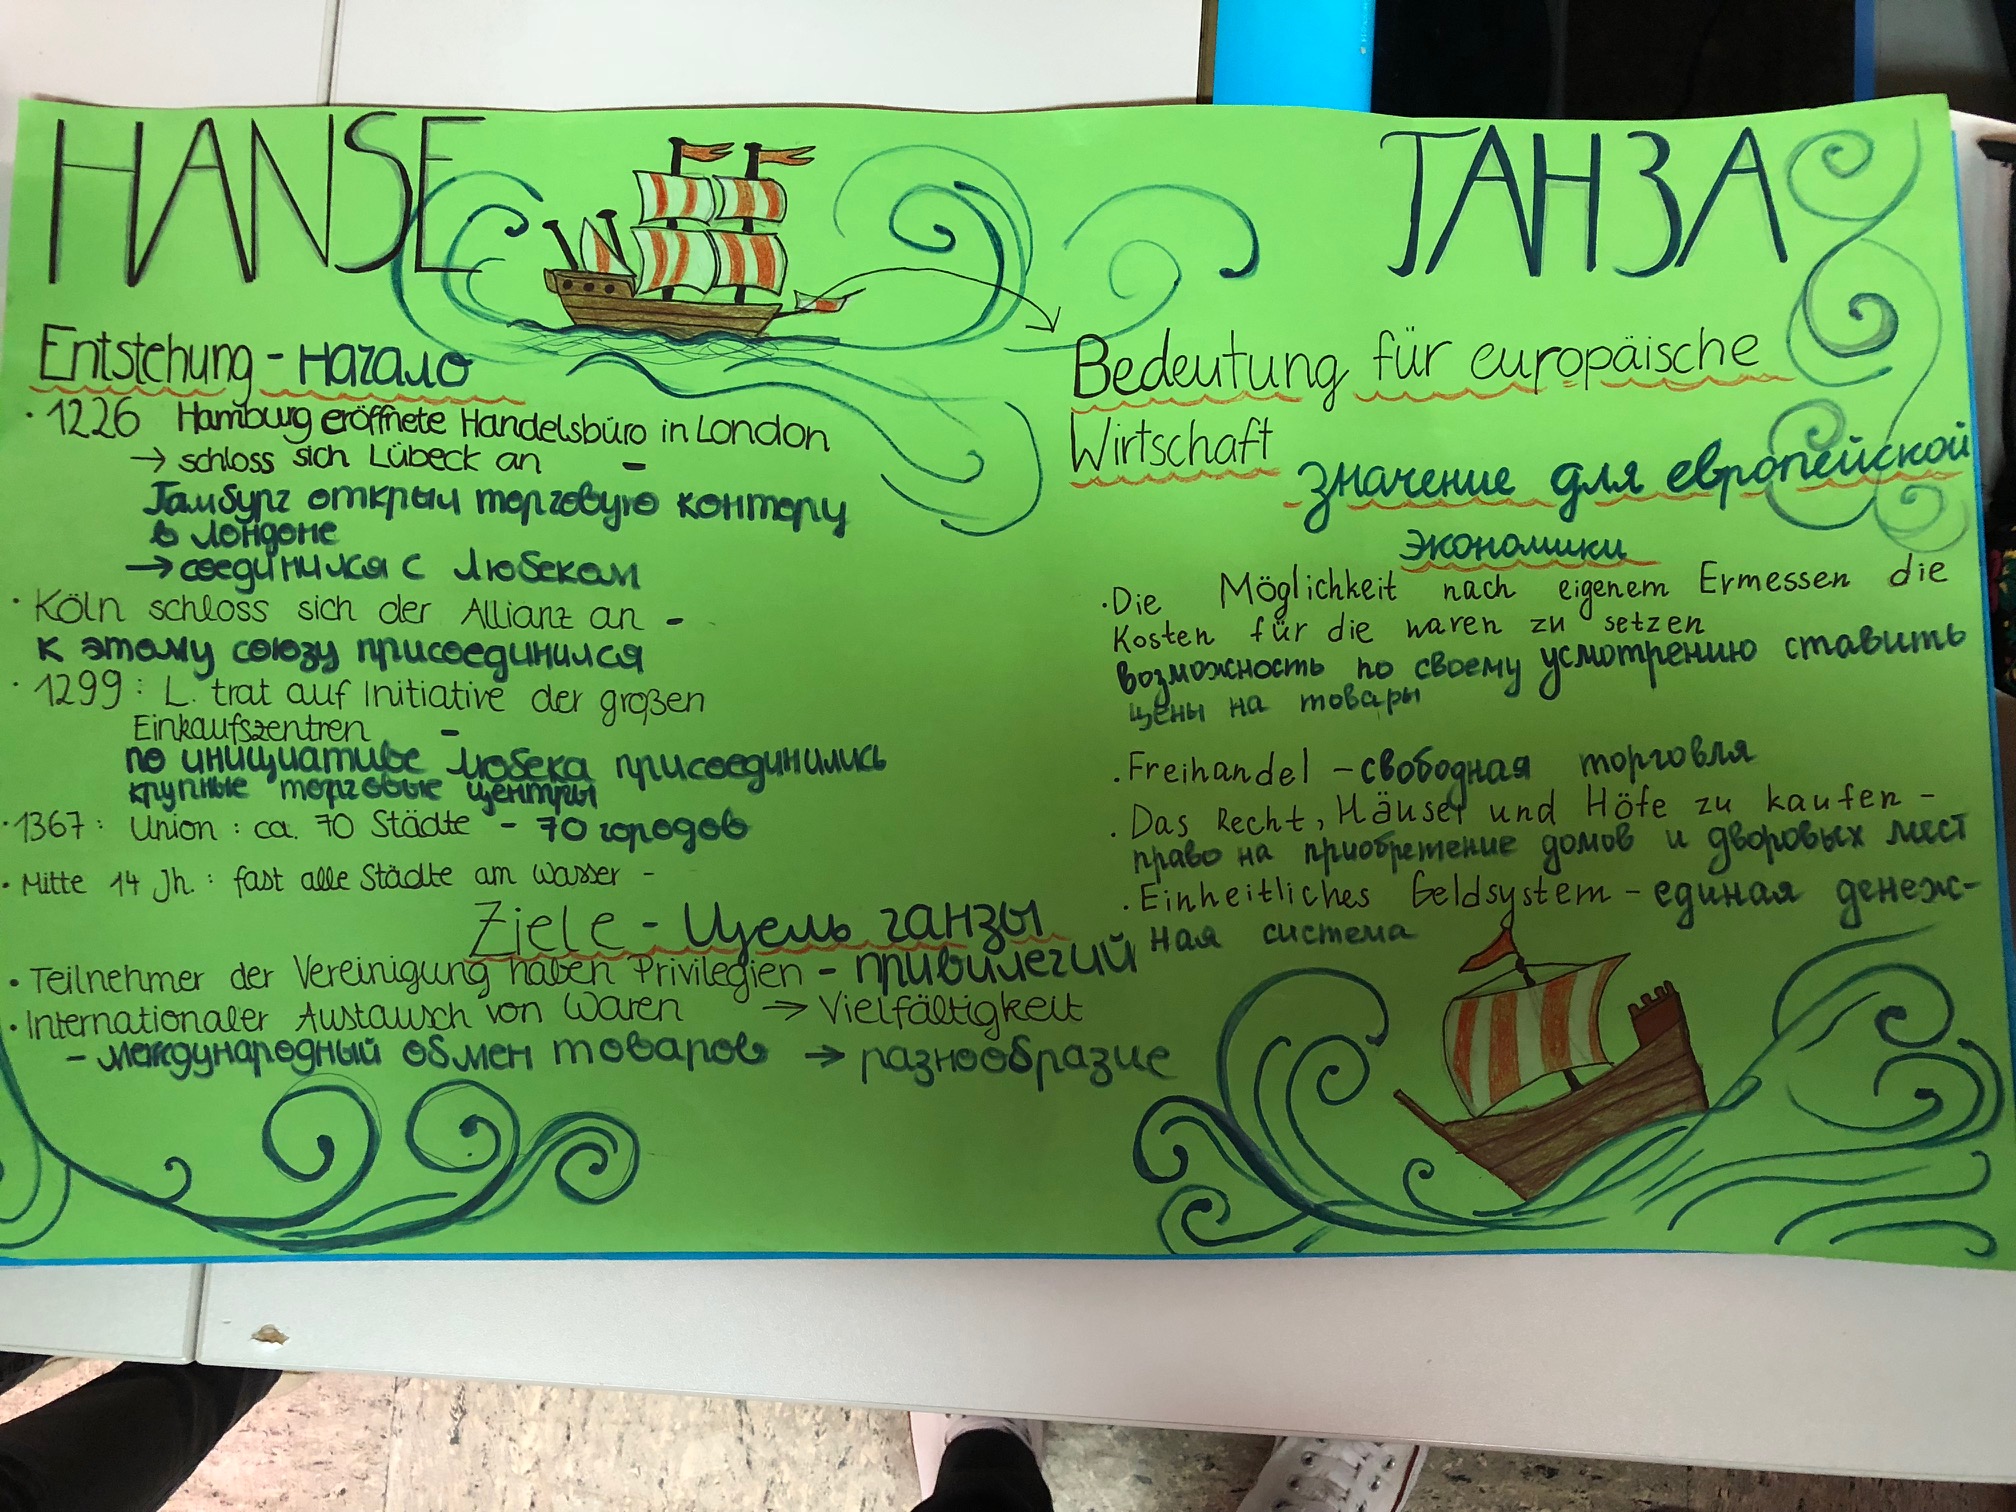 HANSE
ГАНЗА
Entstehung - начало
· 1226 Hamburg eröffnete Handelsbüro in London
→ schloss sich Lübeck an -
Гамбург открыл торговую контору
в лондоне
→ соединился с Любеком
· Köln schloss sich der Allianz an -
к этому союзу присоединился
· 1299: L. trat auf Initiative der großen
Einkaufszentren -
по инициативе Любека присоединились
крупные торговые центры
· 1367: Union: ca. 70 Städte - 70 городов
· Mitte 14 Jh.: fast alle Städte am Wasser -
Ziele - Цель ганзы
· Teilnehmer der Vereinigung haben Privilegien - привилегий
· Internationaler Austausch von Waren → Vielfältigkeit
- международный обмен товаров → разнообразие
Bedeutung für europäische
Wirtschaft
- значение для европейской
экономики
· Die Möglichkeit nach eigenem Ermessen die
Kosten für die waren zu setzen
возможность по своему усмотрению ставить
цены на товары
· Freihandel - свободная торговля
· Das Recht, Häuser und Höfe zu kaufen -
право на приобретение домов и дворовых мест
· Einheitliches Geldsystem - единая денеж-
ная система